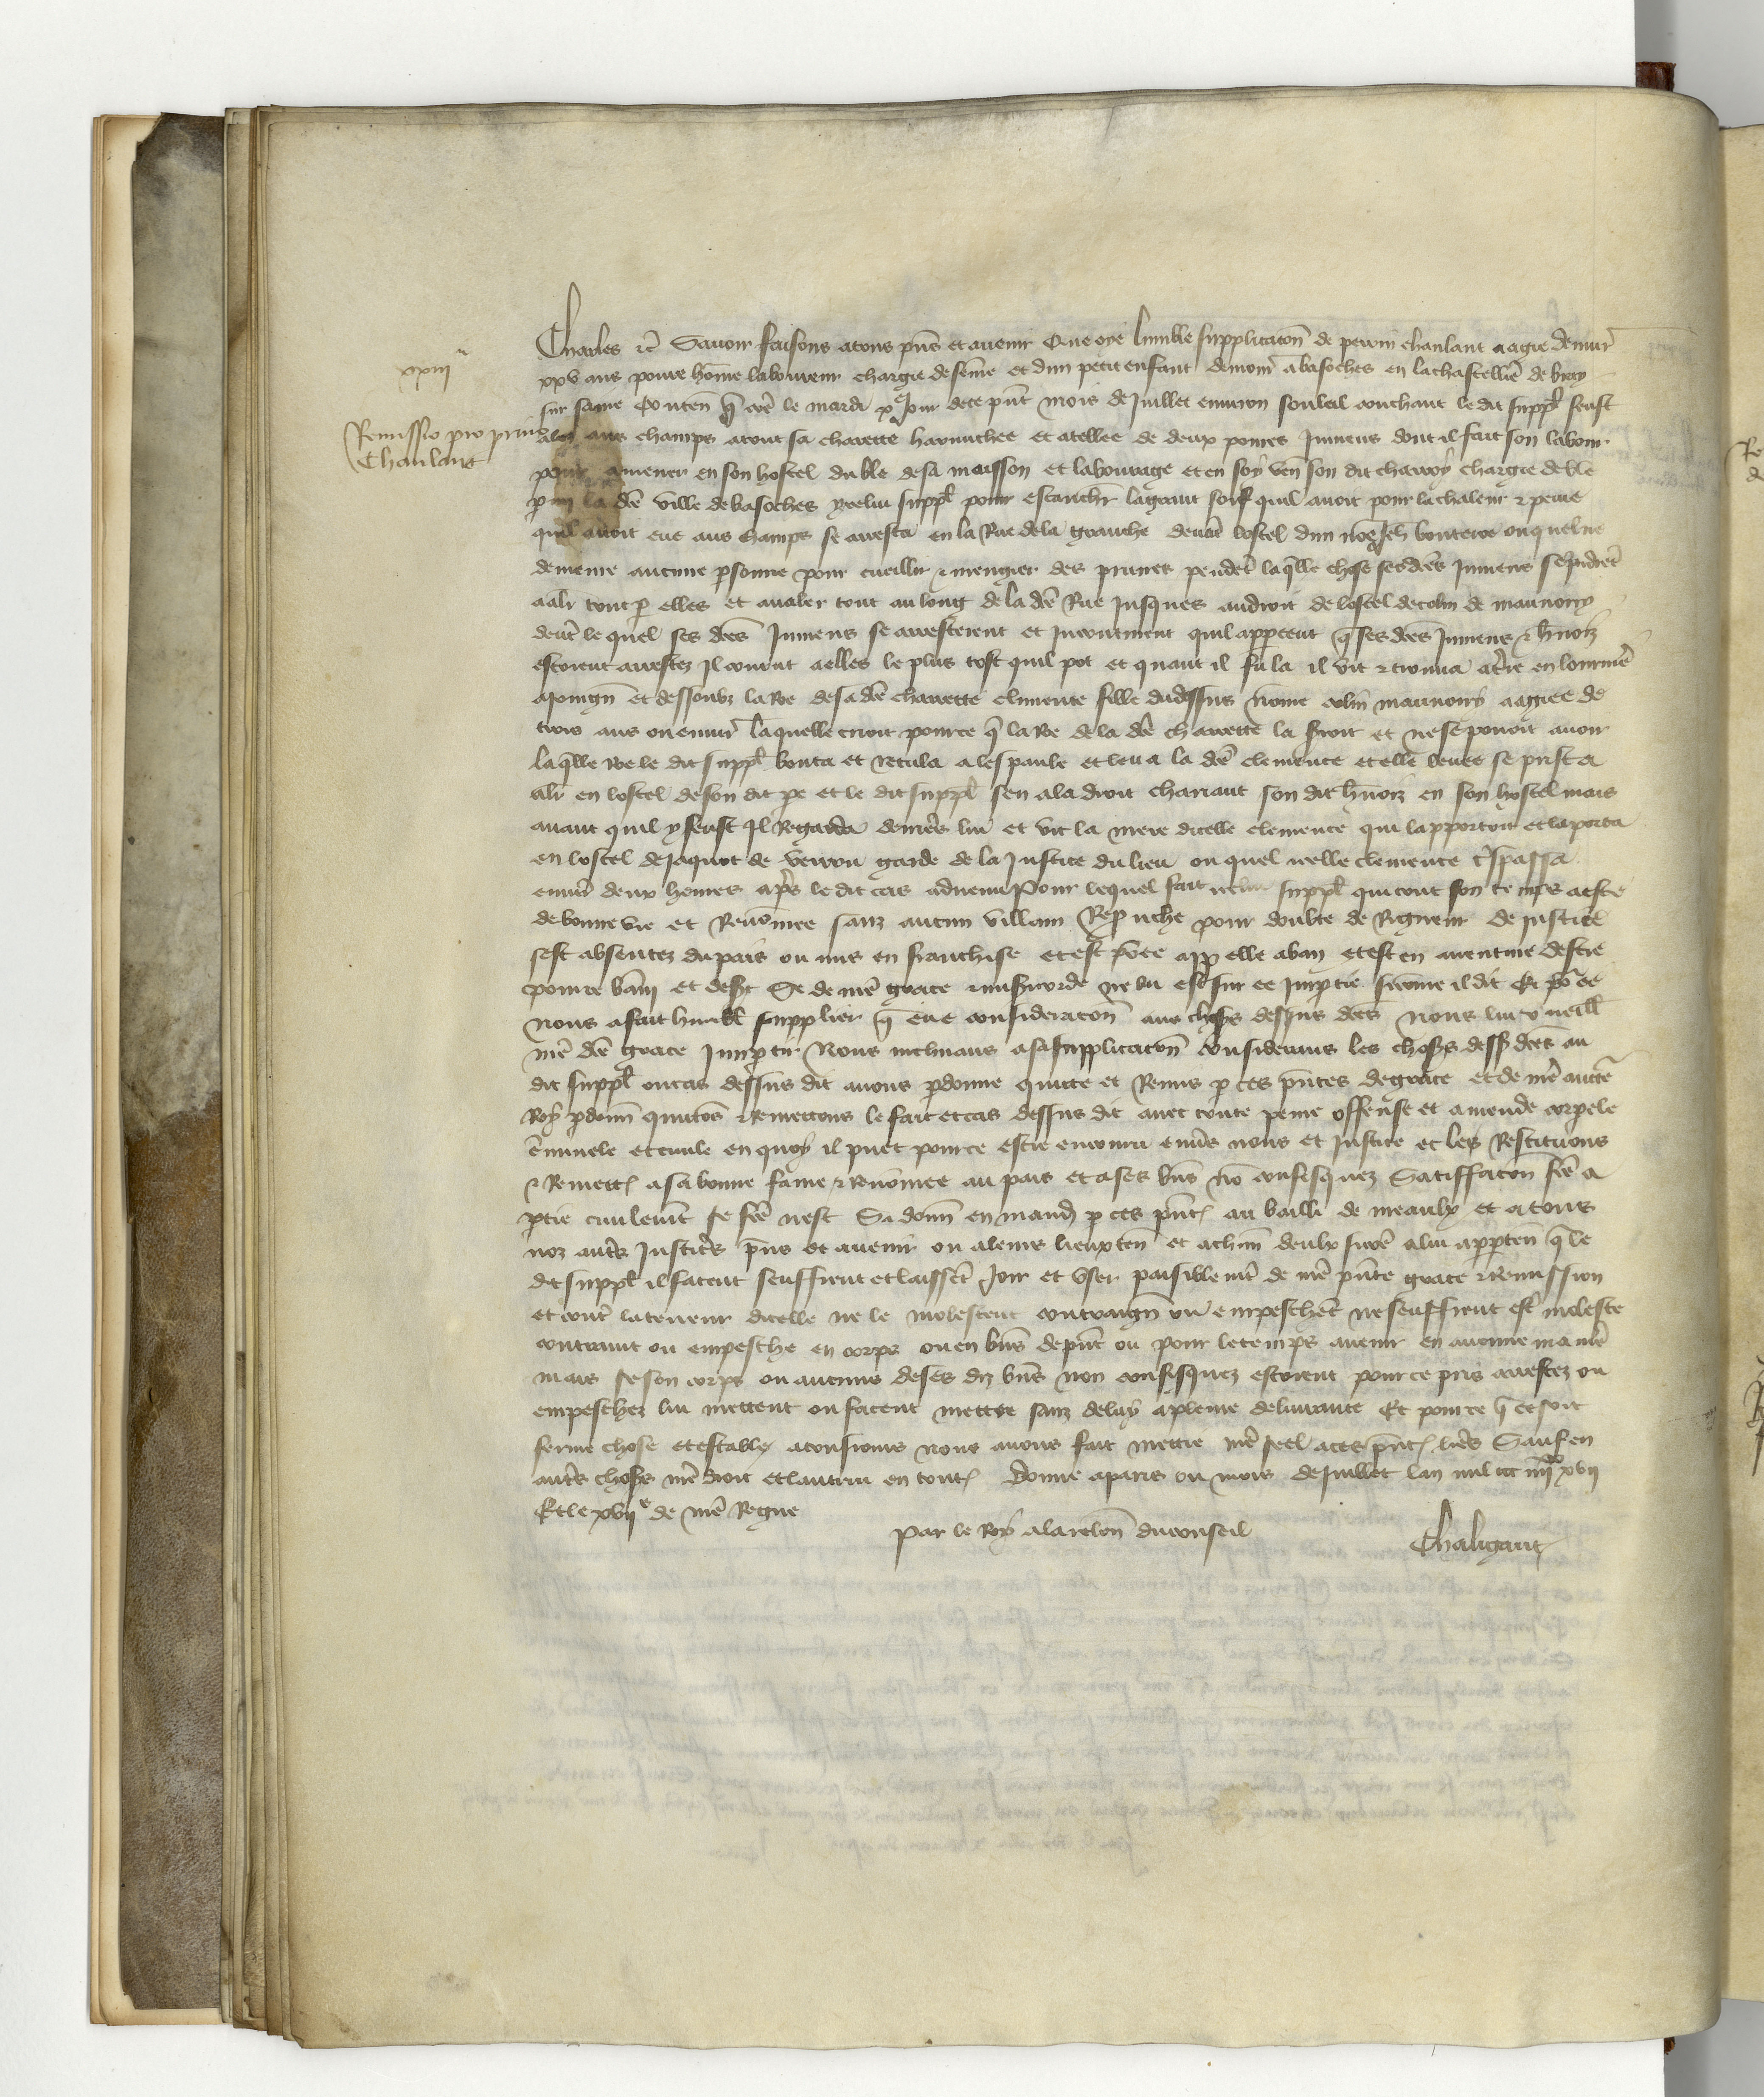 xxiii
Remissio pro perrin
Chanlant
Charles etc Savoir faisons a tous pns et avenir Que oye lumble supplicacon de perrin chanlant aagie denvir
xxv ans povre home laboureur chargie de feme et dun petit enfant demour a basoches en la chastellie de bray
sur saine Conten q come le mardi xe Jour de ce pnt mois de Juillet environ souleil couchant le dit suppl feust
alez aus champs atout sa charette harnachee et atellee de deux povres Jumens dont il fait son labour
pour amener en son hostel du ble de sa moisson et labourage et en soy ven son dit charroy chargie de ble
p my la de ville de basoches ycelui suppl pour estanchr la grant soif quil avoit pour la chaleur et peine
quil avoit eue aus champs se arresta en la Rue de la granche devat lostel dun nome Jeh bouteroe ouquel ne
demeure aucune psonne pour cueillir et mengier des prunes pendet laqlle chose ses des Jumens se prdret
a alr tout p elles et avaler tout au long de la de Rue Jusques au droit de lostel de colin de maunoiry
devt le quel ses des Jumens se arresterent et Incontinent quil appceut q ses des Jumens et hnois
estoient arrestez Il courut a elles le plus tost quil pot et quant il fu la il vit et trouva a tre en lorniere
a poingn et dessoubz la roe de sa de charrette climence fille du dessus nome colin maunoiry aagiee de
trois ans ou envir laquelle crioit pource q la roe de la de charrette la serroit et ne se povoit avoir
laqlle roe le dit suppl bouta et recula a lespaule et leva la de clemence et elle levee se prist a
alr en lostel de son dit pe et le dit suppl sen ala droit chariant son dit hnois en son hostel mais
avant quil y feust Il Regarda derrere lui et vit la mere dicelle clemence qui lapportoit et la porta
en lostel de Jaquot de verrou garde de la Justice du lieu ou quel icelle clemence trespassa
envir deux heures apres le dit cas advenu Pour lequel fait icelui suppl qui tout son temps a este
de bonne vie et Renomee sanz aucun villain Reprouche pour doubte de Rigueur de justice
sest absentez du pais ou mis en franchise et est pour ce appelle a ban et est en aventure destre
pour ce bani et desert Se de nre grace et misicorde ne lui est sur ce Impartie sicome il dit Et pour ce
nous a fait humbl supplier q eue consideracon aus choses dessus des nous lui vueill
nre de grace Impartir Nous inclinans a sa supplicacon considerans les choses dess des au
dit suppl ou cas dessus dit avons pdonne quicte et Remis p ces pntes de grace et de nre aucte
Roy pdonn quictos et Remettons le fait et cas dessus dit avec toute peine offense et amende corpele
criminele et civile en quoy il puet pour ce estre encouru envs nous et Justice et les Restituons
et Remett a sa bonne fame et Renomee au pais et a ses bns no confisquez Satisfacon fce a
ptie civilemt se fce nest Si donn en mand p ces pnt au bailli de meaulx et a tous
noz autrs Justicrs pns et avenir ou a leurs lieuxten et a chun deulx sice a lui apparten q le
dit suppl il facent seuffrent et laisset Joir et user paisiblemt de nre pnte grace et Remission
et contr la teneur dicelle ne le molestent contraign ou empeschet ne seuffrent estr moleste
contraint ou empesche en corps ou en bns de pnt ou pour le temps avenir en aucune mane
mais se son corps ou aucuns de ses diz bns non confisquez estoient pour ce pris arrestez ou
empeschez lui mettent ou facent mettre sanz delay a pleine delivrance Et pour ce q ce soit
ferme chose et estable a tousiours nous avons fait mettre nre seel a ces pnt lres Sauf en
autrs choses nre droit et lautrui en tout Donne a paris ou mois de Juillet lan mil ccc iiiixx xvij
Et le xvije de nre Regne
Par le Roy a la relon du conseil
Chaligaut